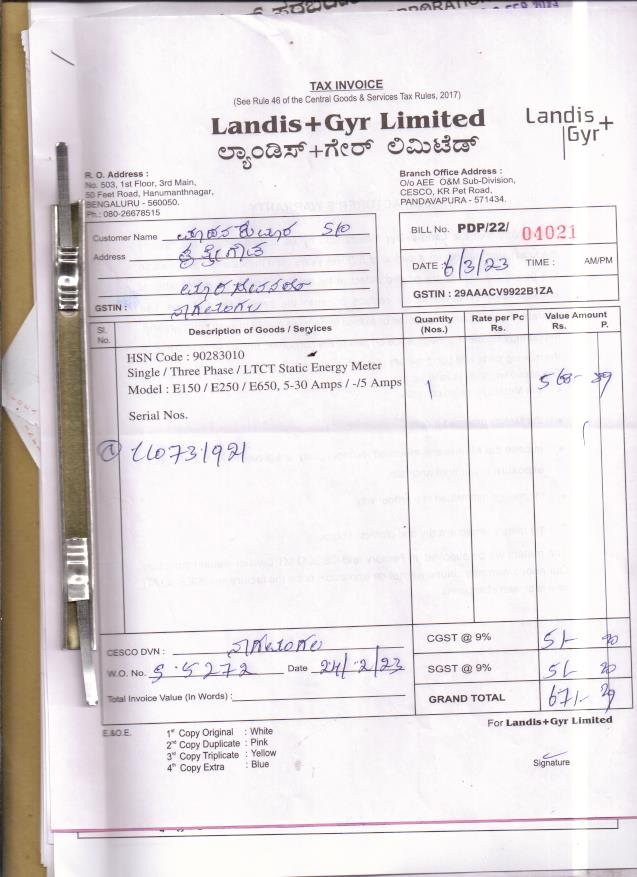 TAX INVOICE
(See Rule 46 of the Central Goods & Services Tax Rules, 2017)
Landis+Gyr Limited
ಲ್ಯಾಂಡಿಸ್+ಗೇರ್ ಲಿಮಿಟೆಡ್
Landis+
Gyr
R. O. Address :
No. 503, 1st Floor, 3rd Main,
50 Feet Road, Hanumanthnagar,
BENGALURU - 560050.
Ph.: 080-26678515
Branch Office Address :
O/o AEE O&M Sub-Division,
CESCO, KR Pet Road,
PANDAVAPURA - 571434.
Customer Name S/o
Address
GSTIN :
BILL No. PDP/22/ 04021
DATE : 6/3/23 TIME : AM/PM
GSTIN : 29AAACV9922B1ZA
Sl. No. Description of Goods / Services Quantity (Nos.) Rate per Pc Rs. Value Amount Rs. P.
HSN Code : 90283010
Single / Three Phase / LTCT Static Energy Meter
Model : E150 / E250 / E650, 5-30 Amps / -/5 Amps 1 568-89
Serial Nos.
CESCO DVN :
W.O. No. 5272 Date 24/2/23
Total Invoice Value (In Words) :
CGST @ 9% 51- 20
SGST @ 9% 51- 20
GRAND TOTAL 671- 29
E.&O.E.
1st Copy Original : White
2nd Copy Duplicate : Pink
3rd Copy Triplicate : Yellow
4th Copy Extra : Blue
For Landis+Gyr Limited
Signature